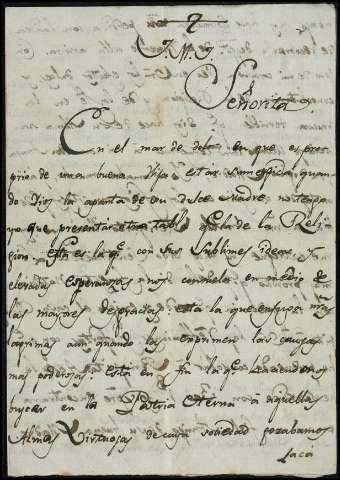 2
J. M. J.
Señorita
En el mar de dolor en que es pre
de una buena Hija estar sumergida quan
do Dios la aparta de su dulce Madre no tengo
yo que presentar otra tabla q.e la de la Reli
gion esta es la q.e con sus sublimes ideas y
elevadas esperanzas nos consuela en medio de
las mayores desgracias esta la que enjuga nras
lagrimas aun quando las exprimen las causas
mas poderosas: esta en fin la q.e haciendonos
buscar en la Patria eterna à aquellas
Almas Virtuosas de cuya sociedad gozabamos